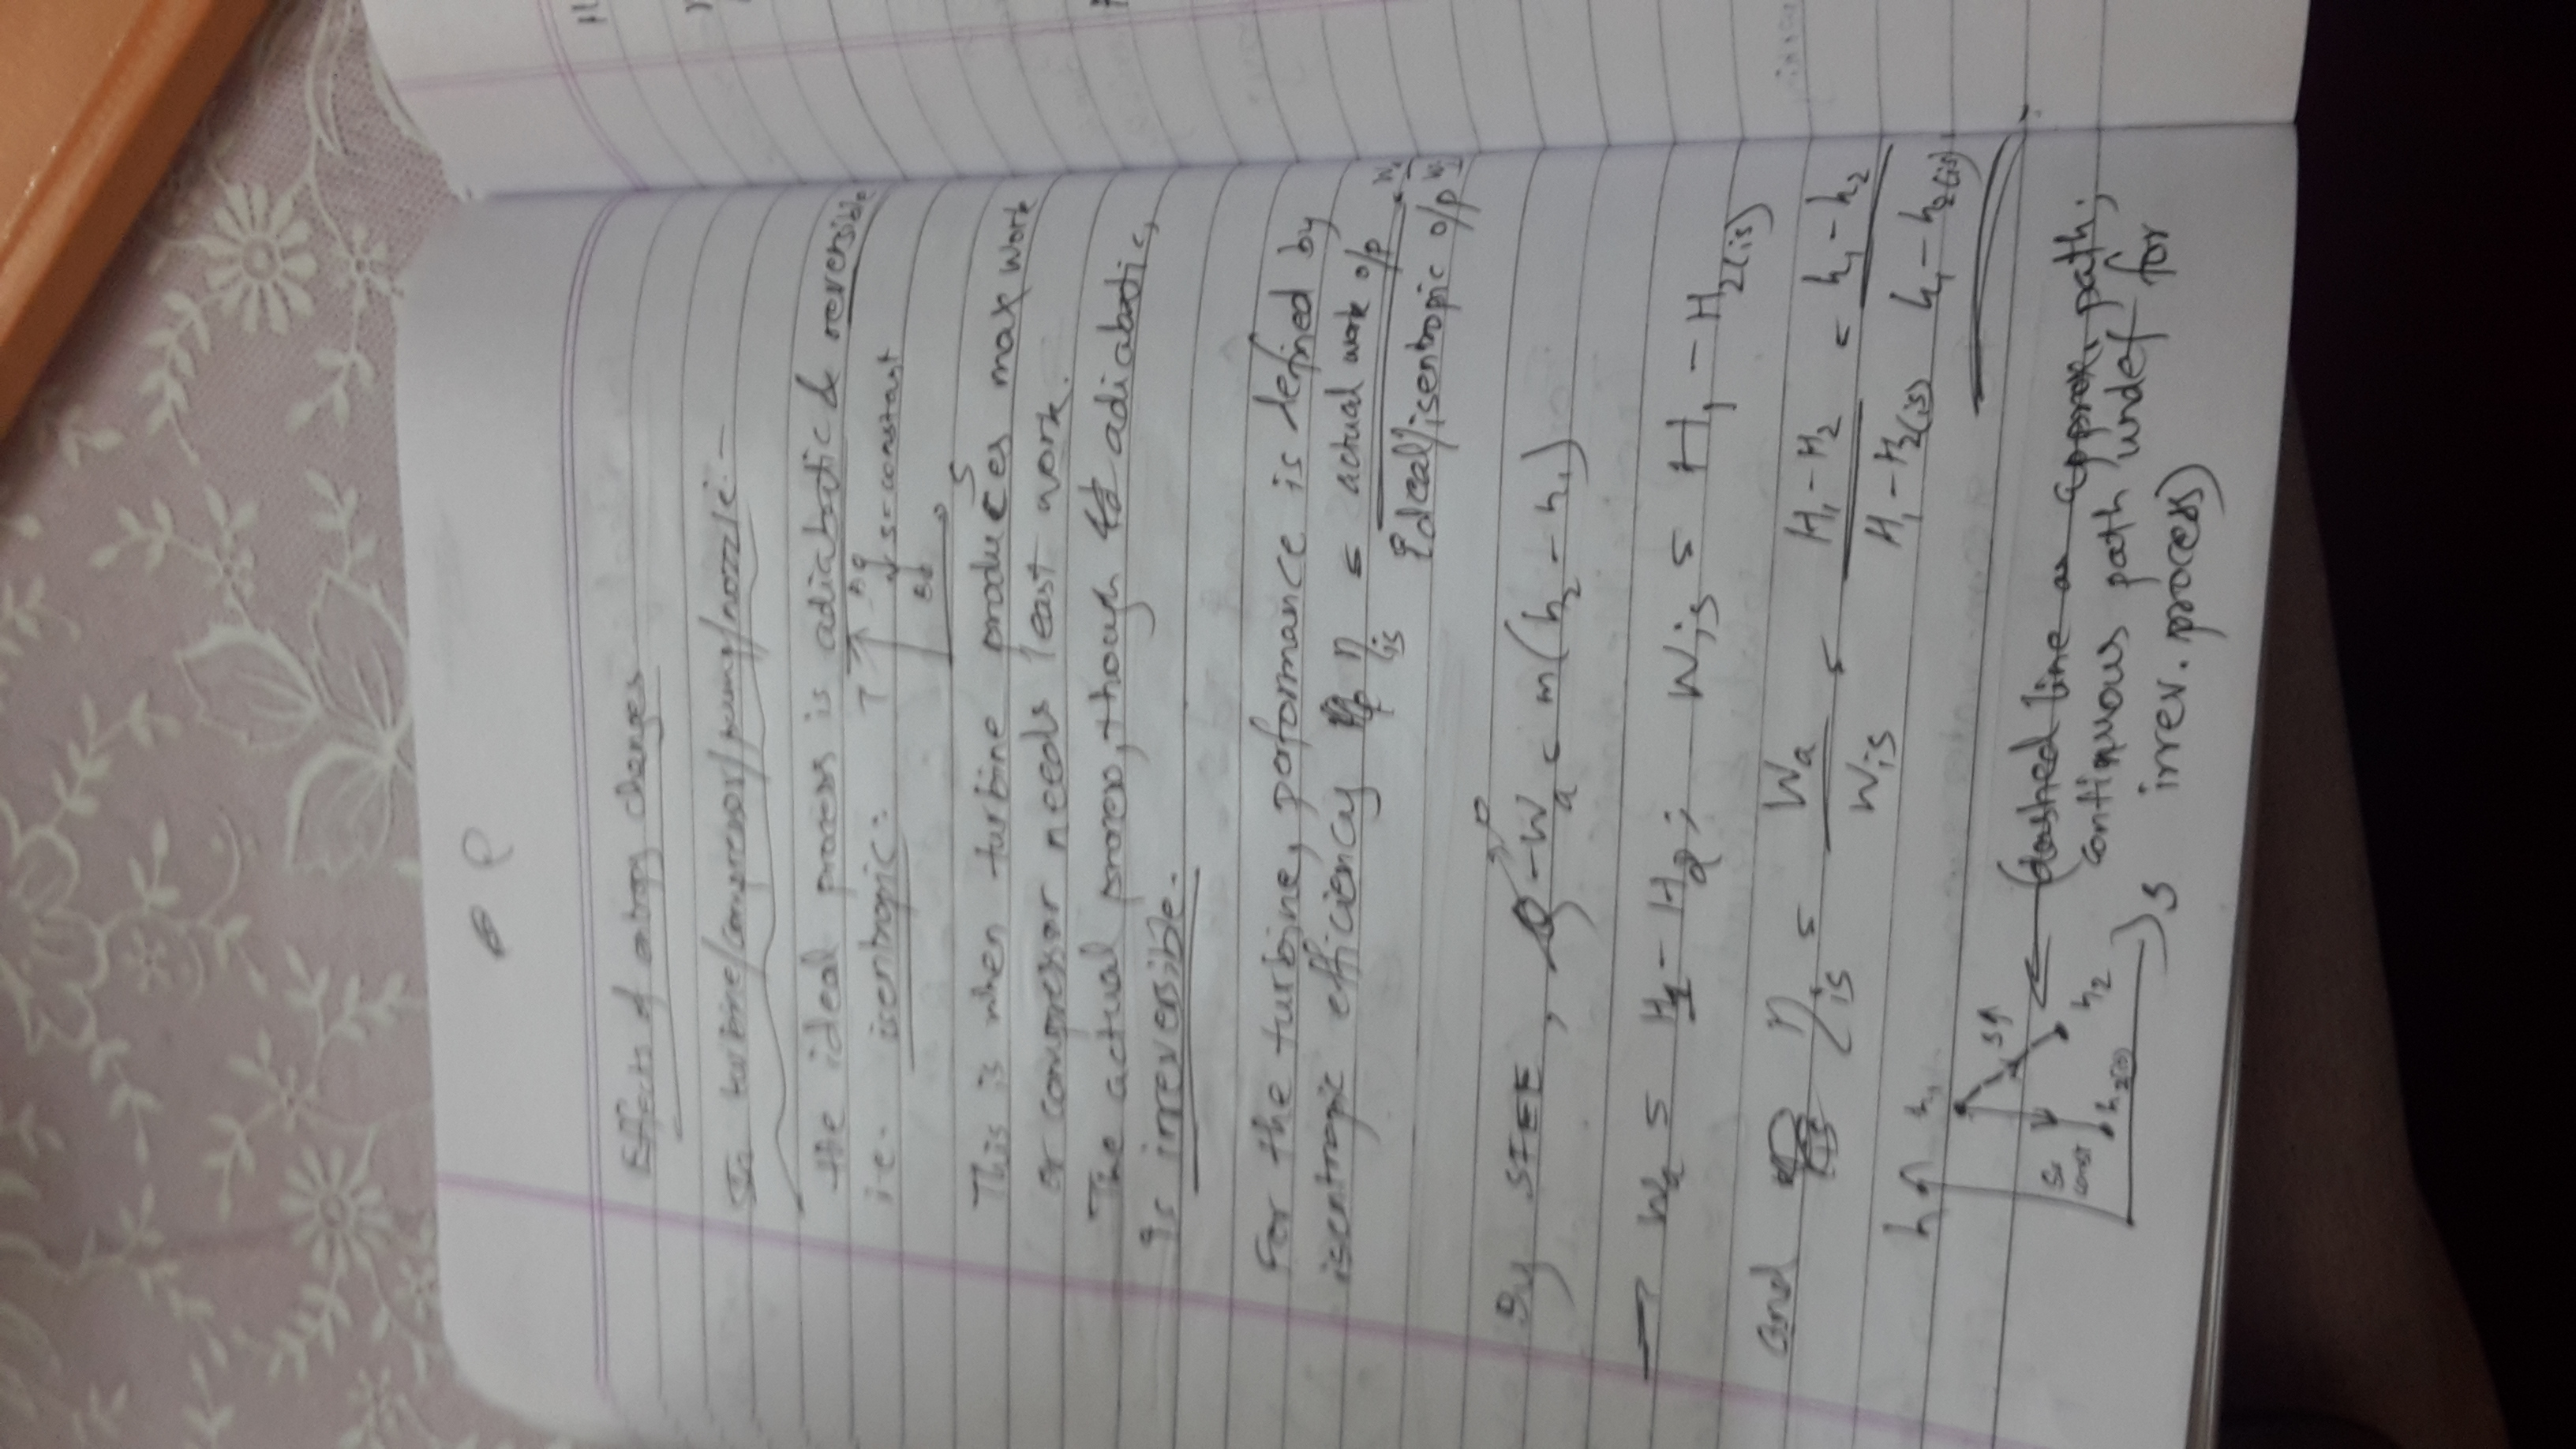 P
Effects of entropy changes
In turbine/compressor/pump/nozzle: -
the ideal process is adiabatic & reversible
i.e. isentropic:
T
s = constant
S
This is when turbine produces max work
or compressor needs least work.
The actual process, though adiabatic,
is irreversible.
For the turbine, peformance is defined by
isentropic efficiency η_is = actual work o/p
Ideal/isentropic o/p
By SFEE, Q - W_a = m(h_2 - h_1)
→ W_a = H_1 - H_2; W_is = H_1 - H_2(is)
and η_is = W_a / W_is = H_1 - H_2 / H_1 - H_2(is) = h_1 - h_2 / h_1 - h_2(is)
h h_1
s↑
(dashed line as approx. path;
S= const h_2(is) h_2 continuous path undef for
s irrev. process)